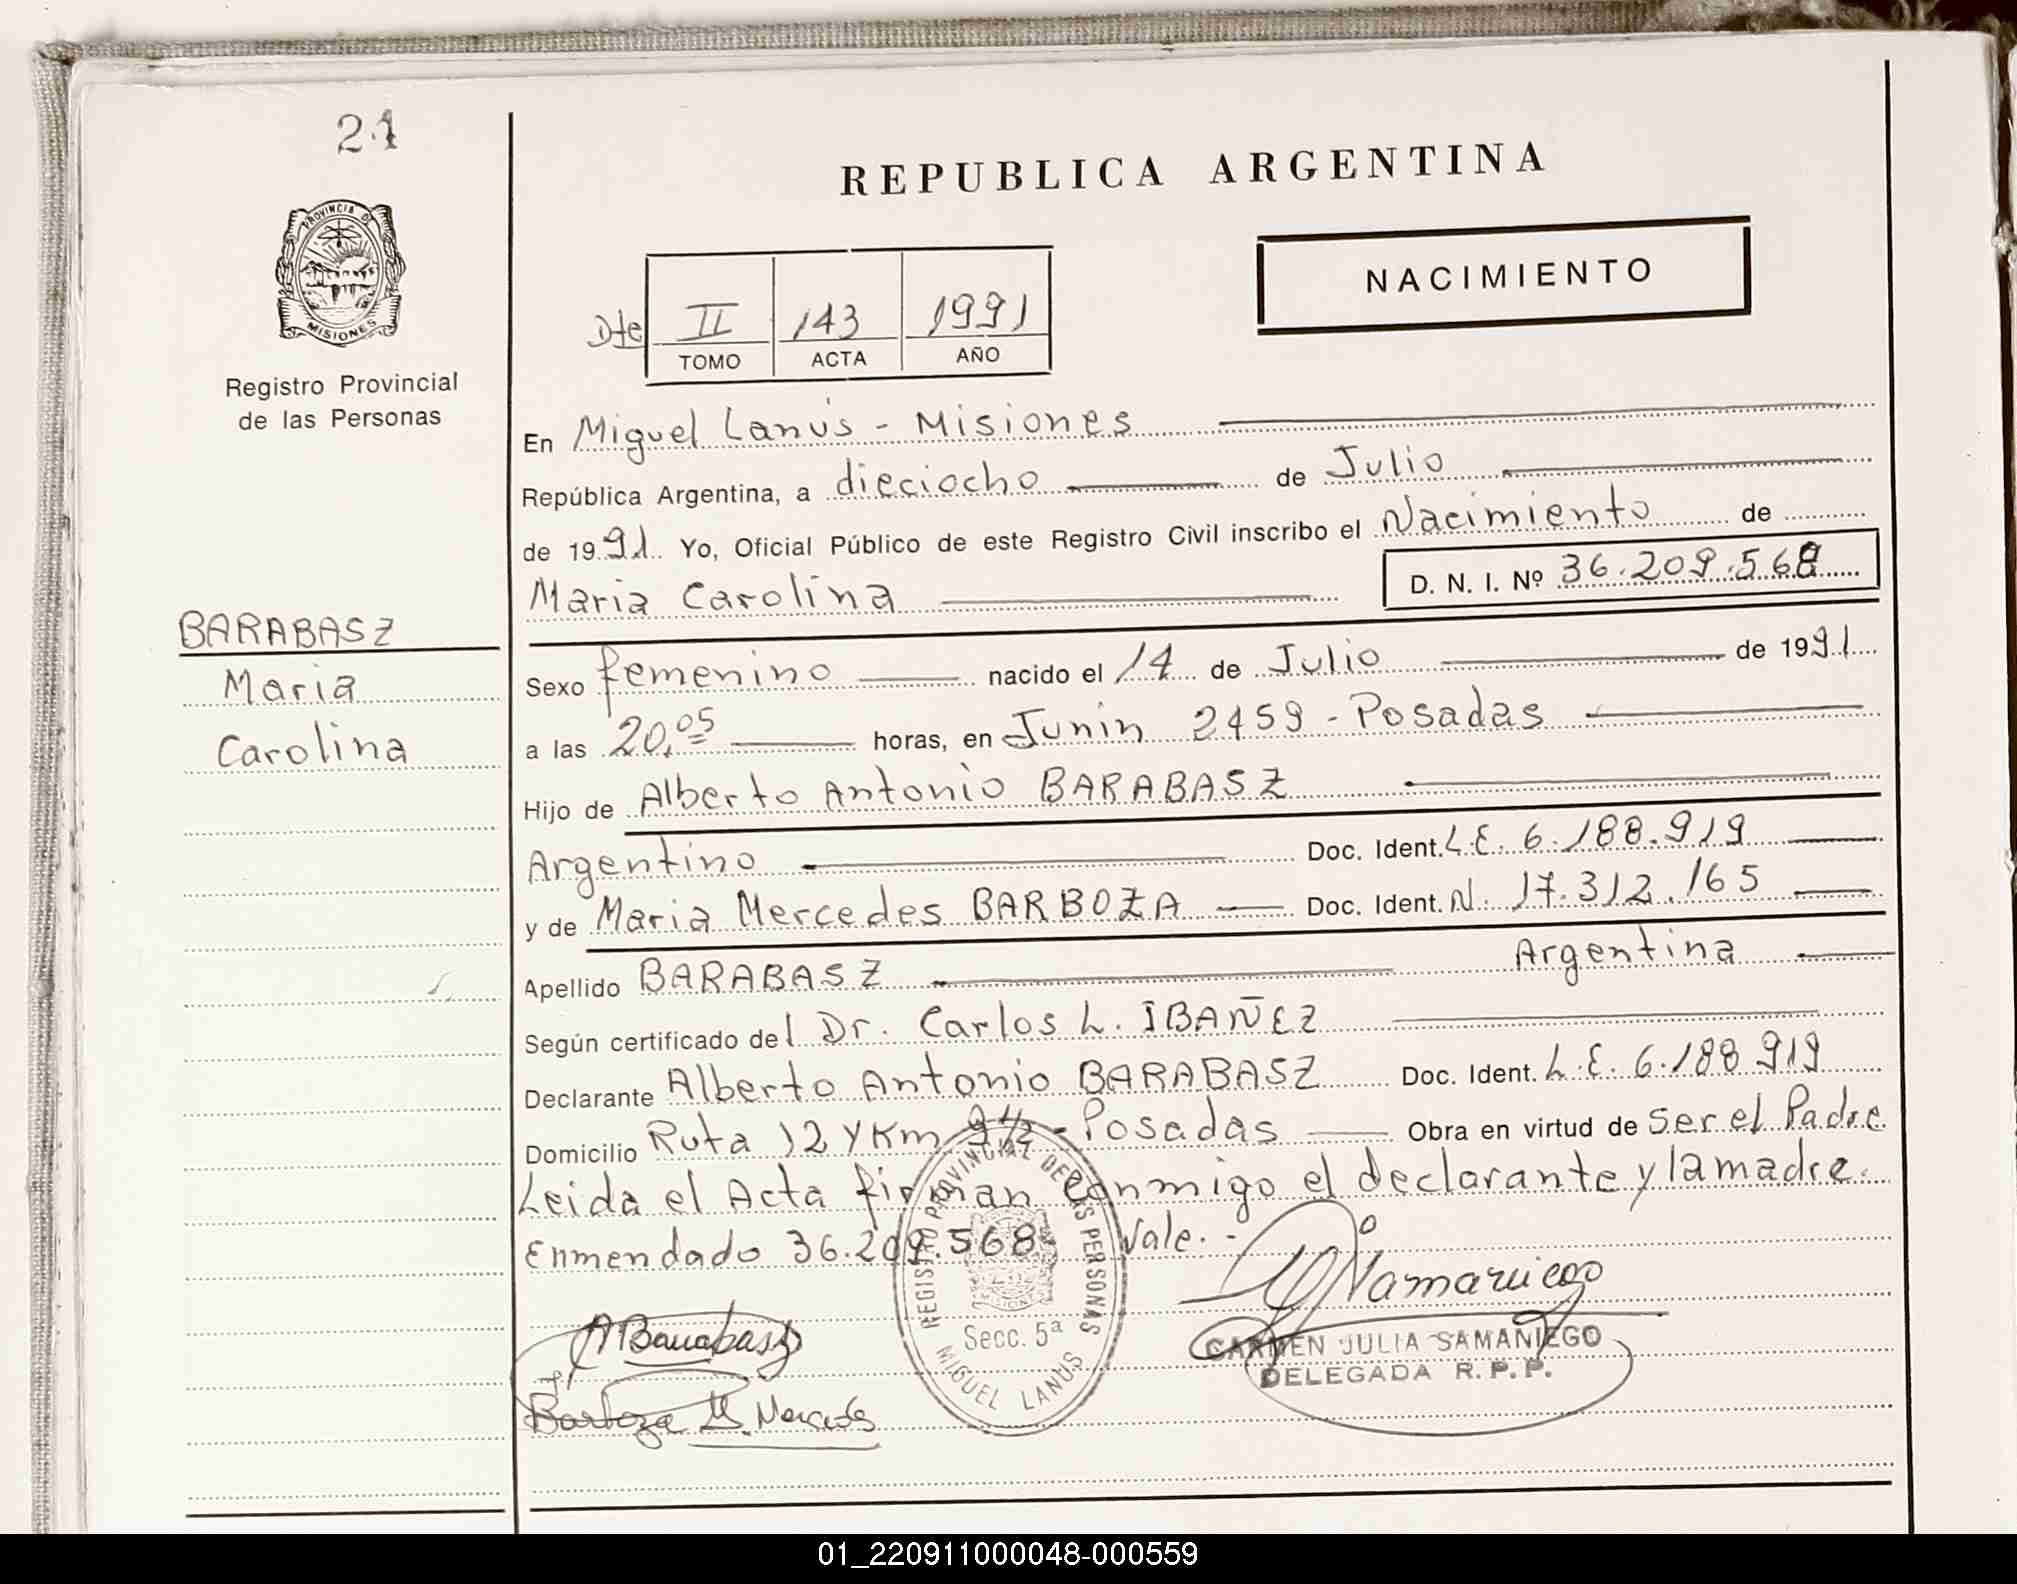 21
REPUBLICA ARGENTINA
PROVINCIA DE
MISIONES
Registro Provincial
de las Personas
NACIMIENTO
Dte II 143 1991
TOMO ACTA AÑO
En Miguel Lanús - Misiones
República Argentina, a dieciocho de Julio
de 1991 Yo, Oficial Público de este Registro Civil inscribo el Nacimiento de
Maria Carolina D. N. I. Nº 36.209.568
BARABASZ
Maria
Carolina
Sexo femenino nacido el 14 de Julio de 1991
a las 20,05 horas, en Junin 2459 - Posadas
Hijo de Alberto Antonio BARABASZ
Argentino Doc. Ident. L.E. 6.188.919
y de Maria Mercedes BARBOZA Doc. Ident. N. 17.312.165
Apellido BARABASZ Argentina
Según certificado del Dr. Carlos L. IBAÑEZ
Declarante Alberto Antonio BARABASZ Doc. Ident. L.E. 6.188.919
Domicilio Ruta 12 y Km 9 1/2 - Posadas Obra en virtud de ser el Padre
Leida el Acta firman conmigo el declarante y la madre.
Enmendado 36.209.568 Vale. -
REGISTRO PROVINCIAL DE LAS PERSONAS
Secc. 5ª
MIGUEL LANUS
A Barabasz
Barboza M. Mercedes
Samaniego
CARMEN JULIA SAMANIEGO
DELEGADA R. P. P.
01_220911000048-000559